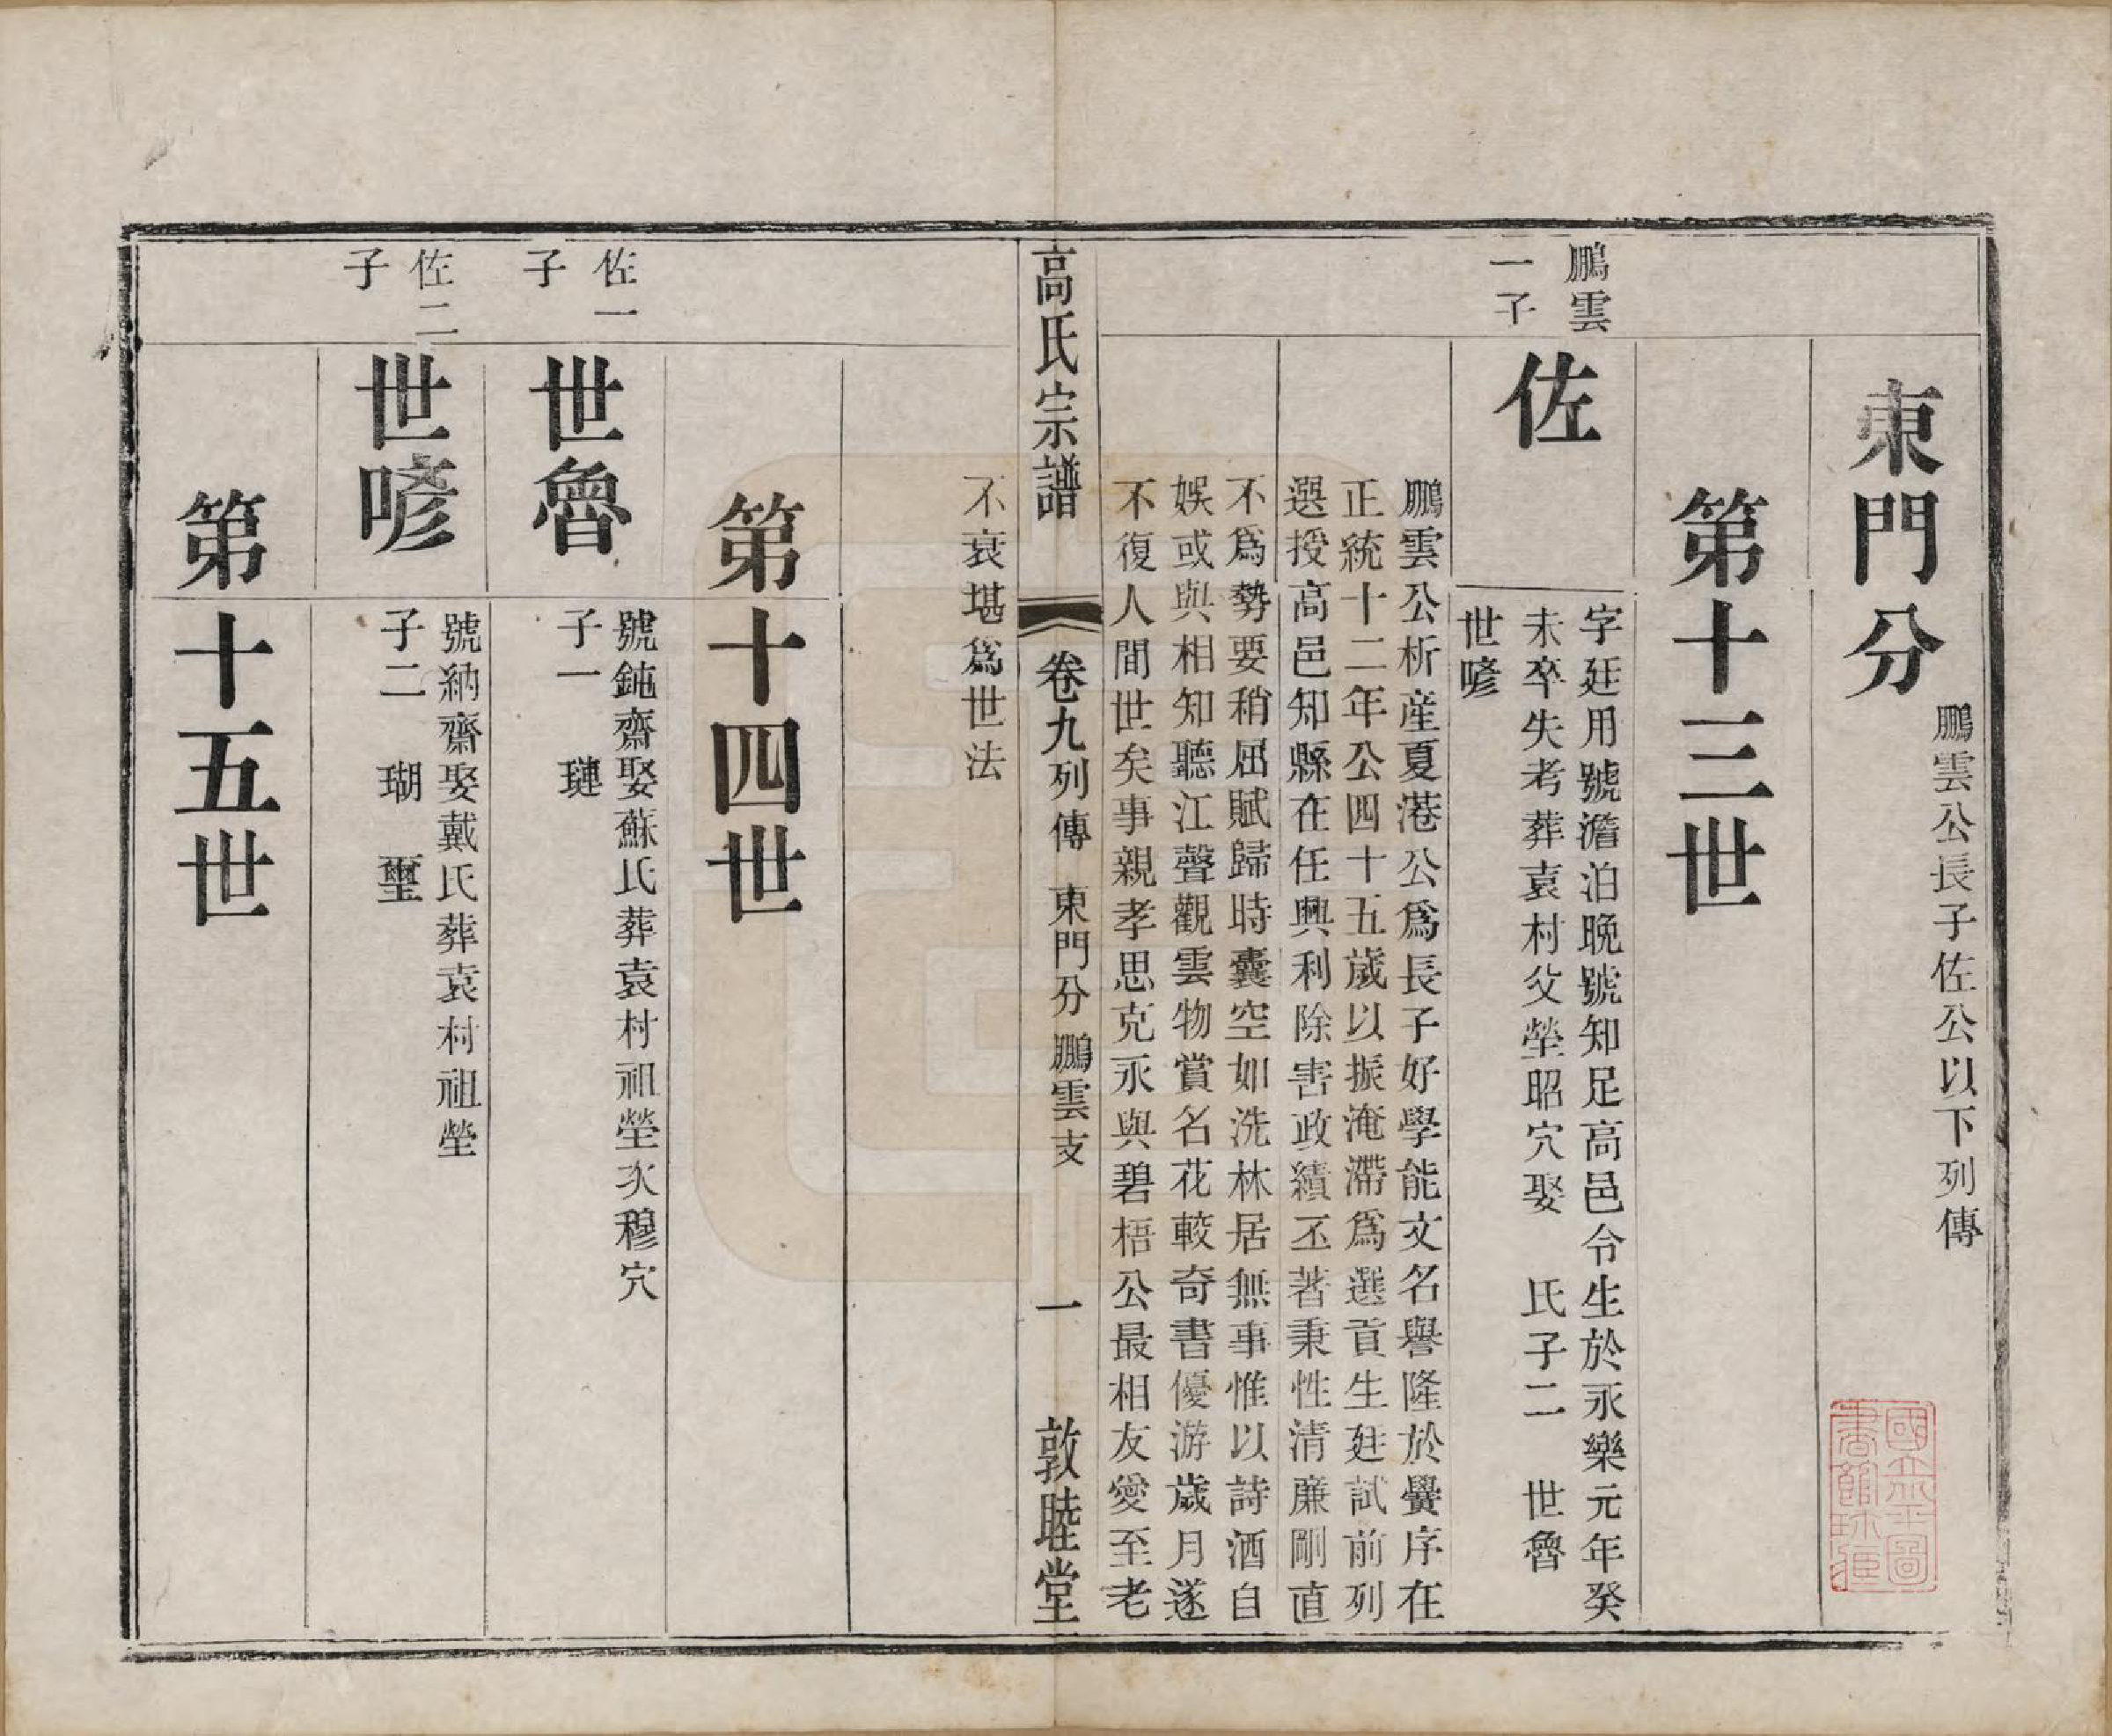 東門分
鵬雲公長子佐公以下列傳
第十三世
鵬雲
一子
佐
字廷用號澹泊晚號知足高邑令生於永樂元年癸
未卒失考葬袁村父塋昭穴娶　氏子二　世魯
世喭
鵬雲公析産夏港公爲長子好學能文名譽隆於黌序在
正統十二年公四十五歲以振淹滯爲選貢生廷試前列
選授高邑知縣在任興利除害政績丕著秉性清廉剛直
不爲勢要稍屈賦歸時囊空如洗林居無事惟以詩酒自
娛或與相知聽江聲觀雲物賞名花較奇書優游歲月遂
不復人間世矣事親孝思克永與碧梧公最相友愛至老
高氏宗譜　卷九列傳　東門分　鵬雲支　一　敦睦堂
不衰堪爲世法
第十四世
佐一
子
世魯
號鈍齋娶蘇氏葬袁村祖塋次穆穴
子一　璉
佐二
子
世喭
號納齋娶戴氏葬袁村祖塋
子二　瑚　璽
第十五世